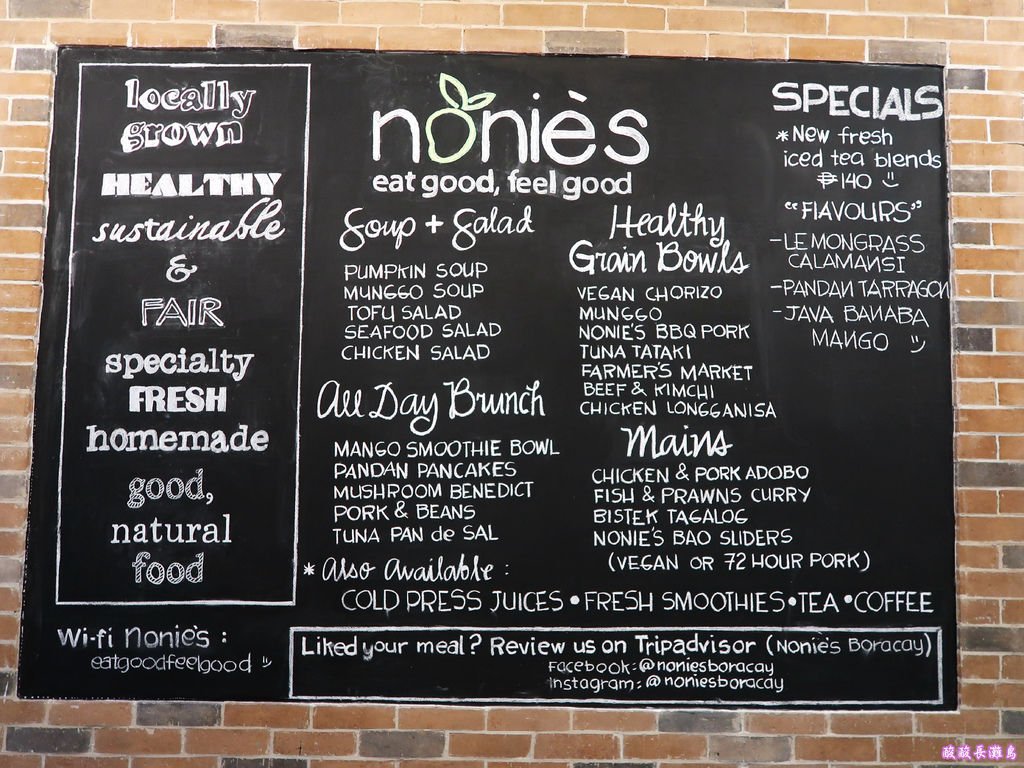 locally
grown
HEALTHY
sustainable
&
FAIR
specialty
FRESH
homemade
good,
natural
food
Wi-fi Nonie's :
eatgoodfeelgood
noniès
eat good, feel good
Soup + Salad
PUMPKIN SOUP
MUNGGO SOUP
TOFU SALAD
SEAFOOD SALAD
CHICKEN SALAD
All Day Brunch
MANGO SMOOTHIE BOWL
PANDAN PANCAKES
MUSHROOM BENEDICT
PORK & BEANS
TUNA PAN de SAL
Healthy
Grain Bowls
VEGAN CHORIZO
MUNGGO
NONIE'S BBQ PORK
TUNA TATAKI
FARMER'S MARKET
BEEF & KIMCHI
CHICKEN LONGGANISA
Mains
CHICKEN & PORK ADOBO
FISH & PRAWNS CURRY
BISTEK TAGALOG
NONIE'S BAO SLIDERS
(VEGAN OR 72 HOUR PORK)
* Also Available :
COLD PRESS JUICES • FRESH SMOOTHIES • TEA • COFFEE
SPECIALS
* New fresh
iced tea blends
₱140
"FLAVOURS"
- LEMONGRASS
CALAMANSI
- PANDAN TARRAGON
- JAVA BANABA
MANGO
Liked your meal? Review us on Tripadvisor (Nonie's Boracay)
Facebook: @noniesboracay
Instagram: @noniesboracay
酸酸長灘島